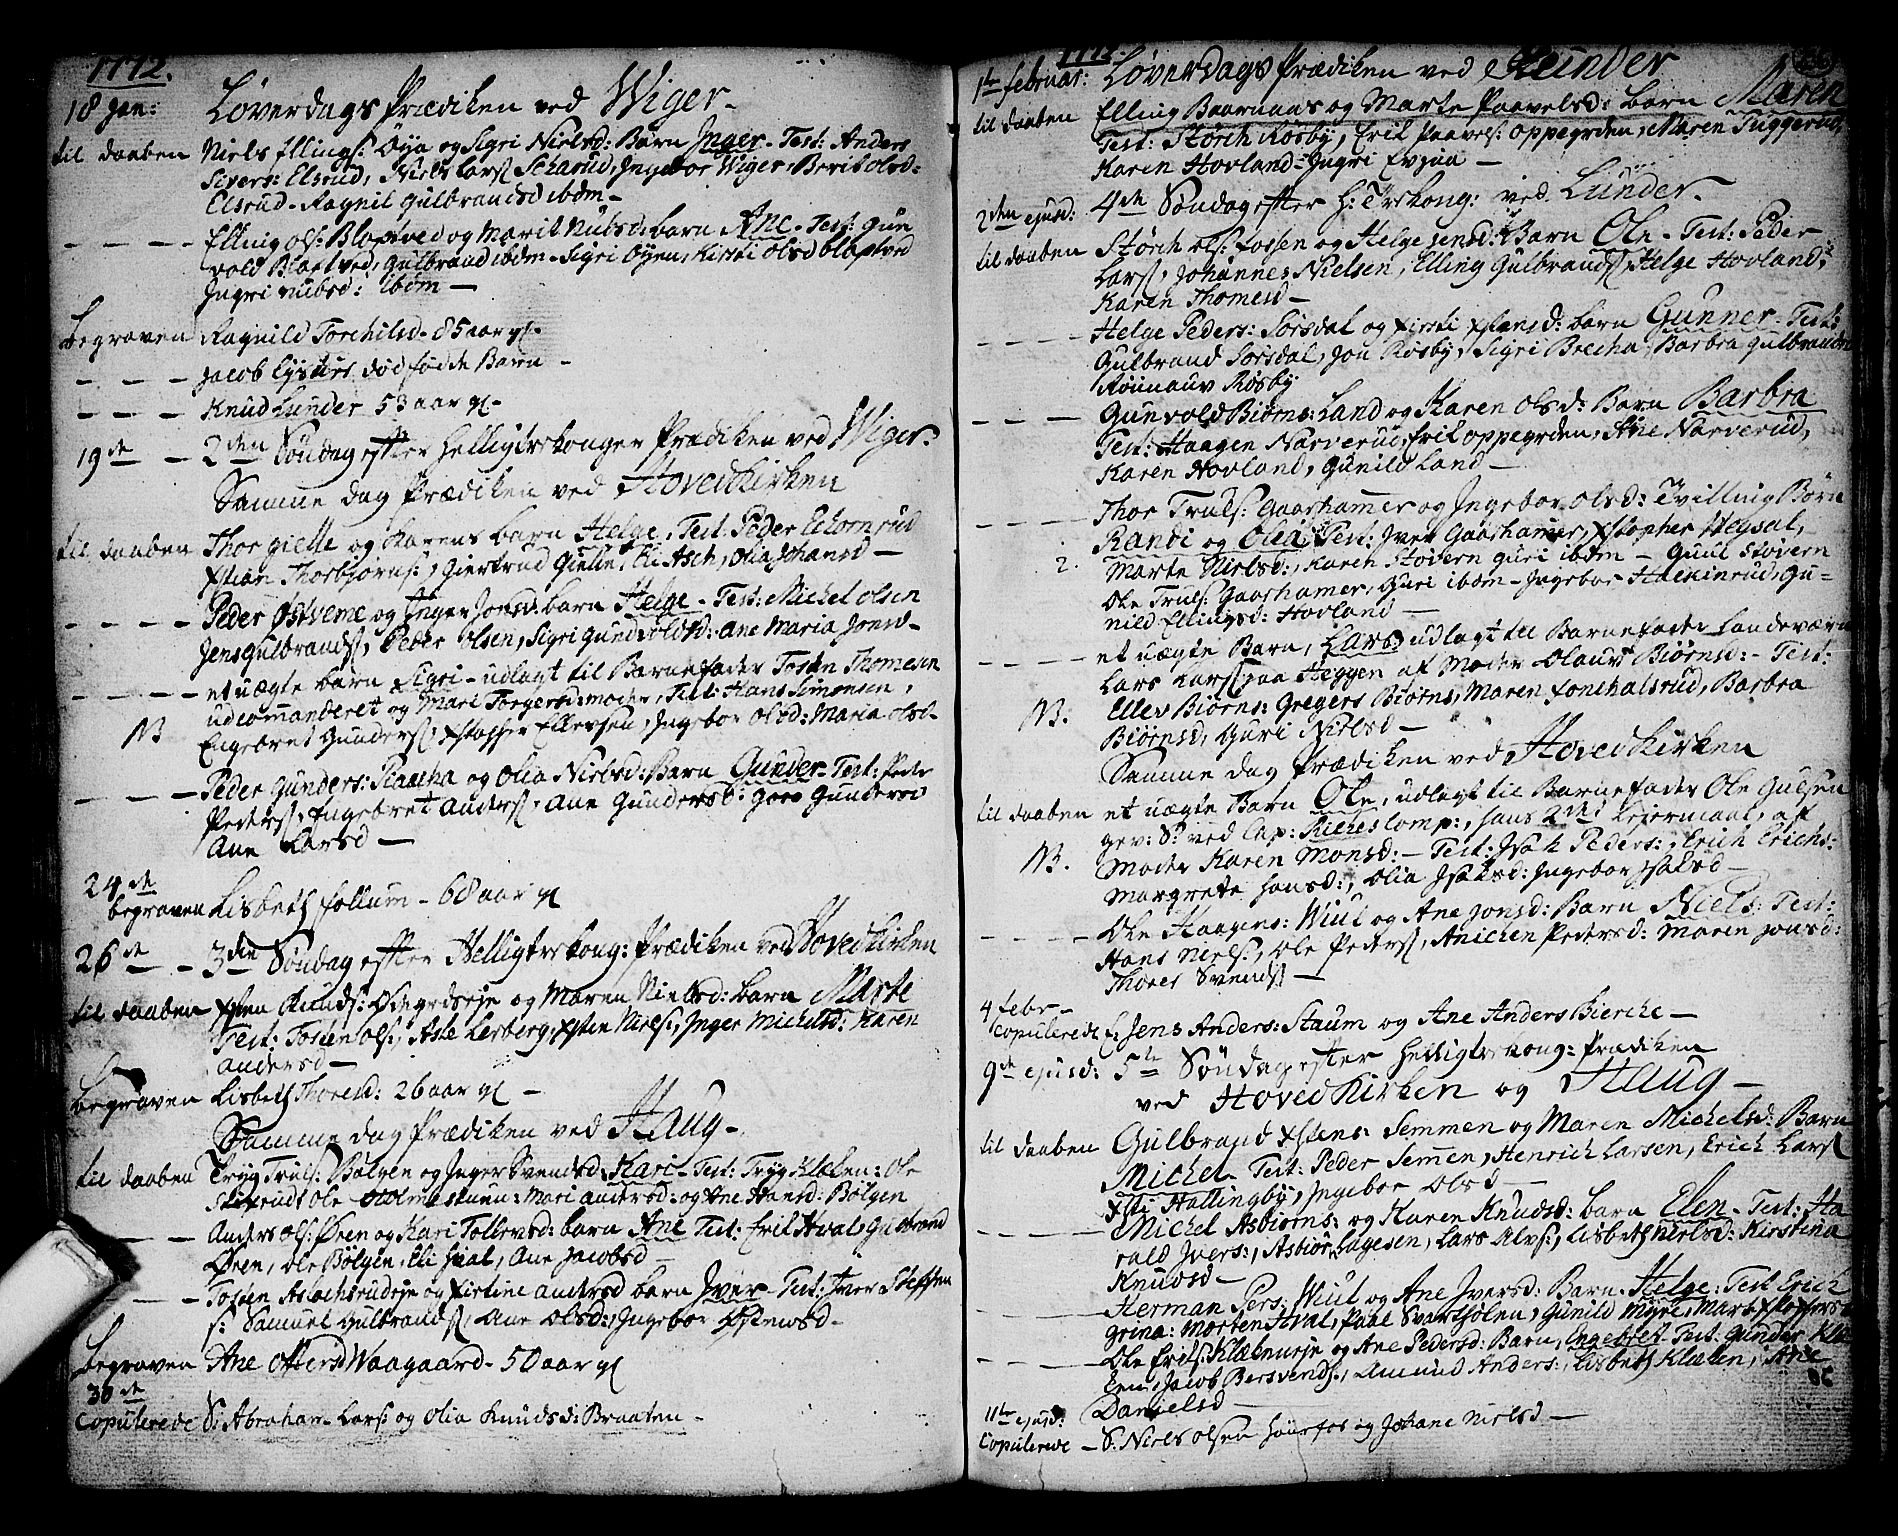 1772.
18 Jan: Løverdags Prædiken ved Wiger-
til daaben Niels Ellings: Øya og Sigri Nielsd: Barn Inger - Test: Anders
Sivers: Elsrud, Niels Lars: Scharud, Ingebor Wiger, Berit Olsd:
Elsrud - Ragnil Gulbrandsd ibdm -
- - - - Elling Ols: Blaktved og Marit Nubsd: barn Ane - Test: Gun
vold Blaktved, Gulbrand ibdm - Sigri Øyen, Kirsti Olsd Blaktved
Ingri Nubsd: ibdm -
Begraven Ragnild Torchilsd - 85 aar gl -
- - - Jacob dødfødde Barn -
- - - Knud Lunder 53 aar gl -
19de - 2den Søndag efter Helligtrekonger Prædiken ved Wiger-
Samme dag Prædiken ved Hovedkirken
til daaben Thor Gielle og Karens barn Helge, Test: Peder Eekornrud
Xstian Thorbjørns:, Giertrud Gielle, Eli Asch, Olia Johansd -
- - - - Peder Østveme og Inger Jonsd: barn Helge - Test: Michel Olsen
Jens Gulbrands:, Peder Olsen, Sigri Gundvoldsd: Ane Maria Jonsd -
- - - - et uægte barn Sigri - udlagt til Barnefader Tosten Thomesen
udcommanderet og Mari Torgersd: moder, Test: Hans Simonsen,
NB Engebret Gunders: Xstopher Ellevsen, Ingebor Olsd: Maria Olsd-
- - - - Peder Gunders: Raacha og Olia Nielsd: Barn Gunder - Test: Peder
Peders:, Engebret Anders:, Ane Gundersd: Goro Gundersd
Ane Larsd -
24de
begraven Lisbeth Follum - 68 aar gl
26de - 3die Søndag efter Helligtrekong: Prædiken ved Hovedkirken
til daaben Xsten Knuds: og Maren Nielsd: barn Marte
Test: Tosten Ols:, Asle Lerberg, Xsten Niels:, Inger Michelsd: Karen
Andersd -
Begraven Lisbeth Thoresd: 26 aar gl -
Samme dag Prædiken ved Haug -
til daaben Tryg Truls: Bølgen og Inger Svendsd: Kari - Test: Tryg Klæken: Ole
Ole Holmestuen: Mari Andersd: og Ane Hansd: Bølgen
- - - Anders Ols: Øren og Kari Tollevsd: barn Ane Test: Erik Hval, Gulbrand
Øren, Ole Bølgen, Eli Hval, Ane Jacobsd -
- - - Tosten Aslachsrudeje og Kirtine Andersd barn Iver Test: Iver Steffen
s: Samuel Gulbrands:, Ane Olsd:, Ingebor Østensd -
Begraven Ane Ottersd Waagaard - 50 aar gl
30de
Copulerede S: Abraham Lars: og Olia Knudsd: Braaten -
1772.
1te Februar: Løverdags Prædiken ved Lunder
til daaben Elling Baarnaas og Marte Paavelsd: barn Maren
Test: Størch Rosby, Erik Paavels: Oppegrden, Maren Tuggerud,
Karen Hovland - Ingri Evjua -
2den ejusd: 4de Søndag efter H: Trekong: ved Lunder -
til daaben Størch Ols: Fossen og Helge Jensd: Barn Ole - Test: Peder
Lars:, Johannes Nielsen, Elling Gulbrands:, Helge Hovland,
Karen Thomesd -
- - - - Helge Peders: Sørsdal og Kirsti Xstensd: barn Gunner - Test:
Gulbrand Sørsdal, Jon Røsby, Sigri Brecha, Barbra Gulbrandsd
Rønnauv Røsby
- - - Gunvold Biørns: Land og Karen Olsd: Barn Barbra
Test: Haagen Narverud, Erik Oppegrden, Ane Narverud,
Karen Hovland, Gunild Land -
- - - - Thor Truls: Gaarhamer og Ingebor Olsd: Tvilling Børn
Randi og Olea Test: Iver Gaarhamer, Xstopher Heysal,
2. Marte Nielsd:, Karen Støvern Guri ibdm - Guul Støvern
Ole Truls: Gaarhamer, Guri ibdm - Ingebor Hackinrud, Gu=
nild Ellingsd: Hovland -
- - - - et uægte Barn, Lars, udlagt til Barnefader Landeværn
Lars Lars: paa Heggen af Moder Olaug Biørnsd: - Test:
NB. Ellev Biørns: Gregers Biørns, Maren Fonehalsrud, Barbra
Biørnsd, Guri Nielsd -
Samme dag Prædiken ved Hovedkirken
til daaben et uægte Barn Ole, udlagt til Barnefader Ole Gulsen
gev: S: ved Cap: Comp:, hans 2det Lejermaal, af
NB. Moder Karen Monsd: - Test: Isak Peders:, Erich Erichs:
Margrete Hansd:, Olia Isaksd: Ingebor Isaksd -
- - - - Ole Haagens: Wiul og Ane Jonsd: Barn Niels: Test:
Hans Niels:, Ole Peders:, Anichen Pedersd: Maren Jonsd:
Thores Svends: -
4 Febr -
Copulerede E: Jens Anders: Staum og Ane Anders Bierche -
9de ejusd: 5te Søndag efter Helligtrekong: Prædiken
ved Hovedkirken og Haug -
til daaben Gulbrand Xstens: Semmen og Maren Michelsd: Barn
Michel Test: Peder Semmen, Henrich Larsen, Erich Lars:
Xsti Hallingby, Ingebor Olsd -
- - - - Michel Asbiørns: og Karen Knudsd: barn Elen - Test: Ha
rald Ivers:, Asbiør Lagesen, Lars Alvs:, Lisbeth Nielsd: Kirstina
Knudsd -
- - - - Herman Pers: Wiul og Ane Iversd: Barn Helge: Test: Erich
Grina: Morten Hval, Paal Svartsølen, Gunild Myre, Mari Xstophersd
- - - - Ole Eriks: Klækeneje og Ane Pedersd: Barn, Engebret Test: Gunder Klæ
Een, Jacob Bersvends:, Amund Anders:, Lisbeth Klæken, Ane
Danielsd -
11te ejusd:
Copulerede - S: Niels Olsen Hønefos og Johane Nielsd -